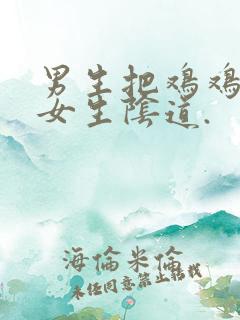 男生把鸡鸡
女生阴道.
海倫米倫
未经同意禁止转载